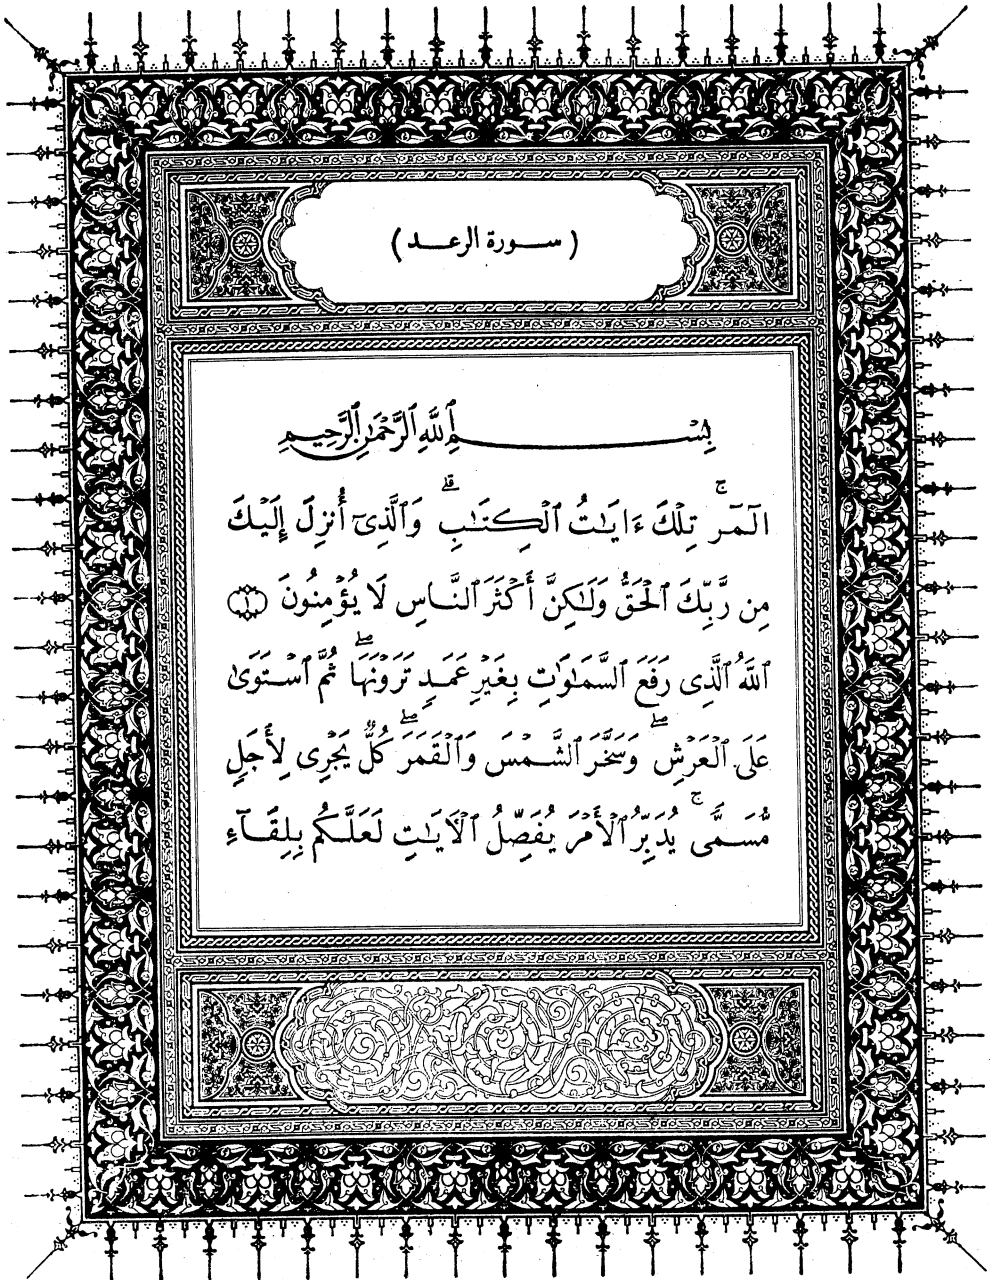 ( سورة الرعد )
بِسْمِ ٱللَّهِ ٱلرَّحْمَٰنِ ٱلرَّحِيمِ
الٓمٓر ۚ تِلْكَ ءَايَٰتُ ٱلْكِتَٰبِ ۗ وَٱلَّذِىٓ أُنزِلَ إِلَيْكَ
مِن رَّبِّكَ ٱلْحَقُّ وَلَٰكِنَّ أَكْثَرَ ٱلنَّاسِ لَا يُؤْمِنُونَ ١
ٱللَّهُ ٱلَّذِى رَفَعَ ٱلسَّمَٰوَٰتِ بِغَيْرِ عَمَدٍ تَرَوْنَهَا ۖ ثُمَّ ٱسْتَوَىٰ
عَلَى ٱلْعَرْشِ ۖ وَسَخَّرَ ٱلشَّمْسَ وَٱلْقَمَرَ ۖ كُلٌّ يَجْرِى لِأَجَلٍ
مُّسَمًّى ۚ يُدَبِّرُ ٱلْأَمْرَ يُفَصِّلُ ٱلْءَايَٰتِ لَعَلَّكُم بِلِقَآءِ